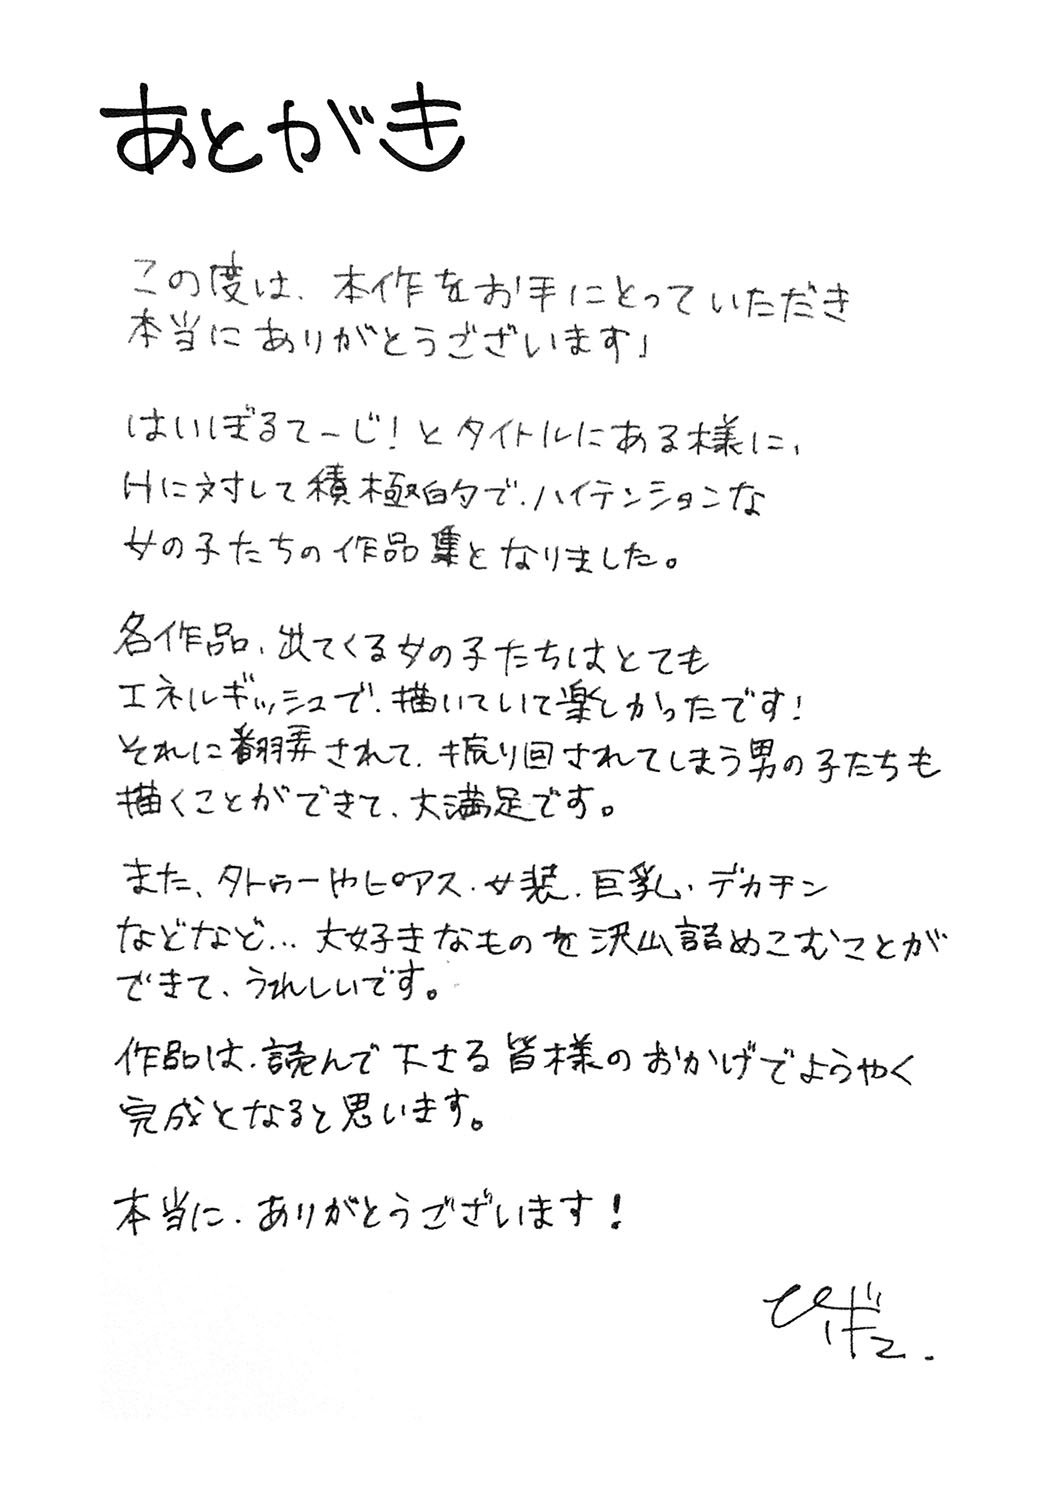 あとがき
この度は、本作をお手にとっていただき
本当にありがとうございます」
はいぼるてーじ!とタイトルにある様に、
Hに対して積極的で、ハイテンションな
女の子たちの作品集となりました。
各作品、出てくる女の子たちはとても
エネルギッシュで、描いていて楽しかったです!
それに翻弄されて、振り回されてしまう男の子たちも
描くことができて、大満足です。
また、タトゥーやピアス、女装、巨乳、デカチン
などなど…大好きなものを沢山詰めこむことが
できて、うれしいです。
作品は、読んで下さる皆様のおかげでようやく
完成となると思います。
本当に、ありがとうございます!
ひげこ.